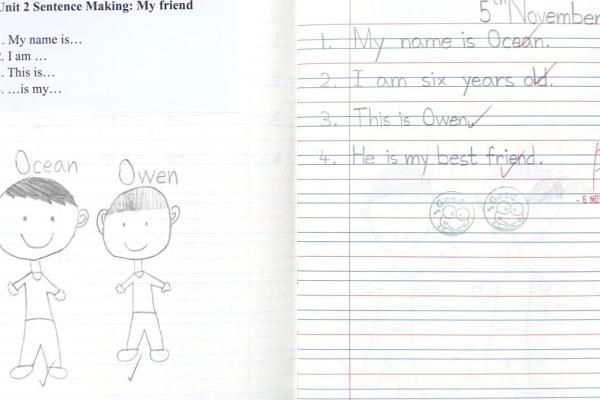 Unit 2 Sentence Making: My friend
. My name is…
. I am …
. This is…
. …is my…
Ocean
Owen
5th November
1. My name is Ocean.
2. I am six years old.
3. This is Owen.
4. He is my best friend.
- 6 NO